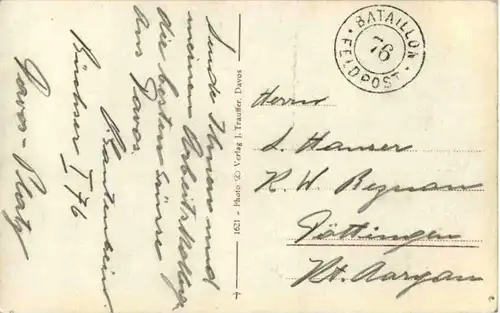 Sende Ihnen und
meinen Arbeitskollegen
die besten Grüsse
aus Davos.
Büchser I/76
Davos-Platz
1621 - Photo & Verlag J. Trauffer, Davos
BATAILLON
76
FELDPOST
Herrn
H. W.
Döttingen
Kt. Aargau